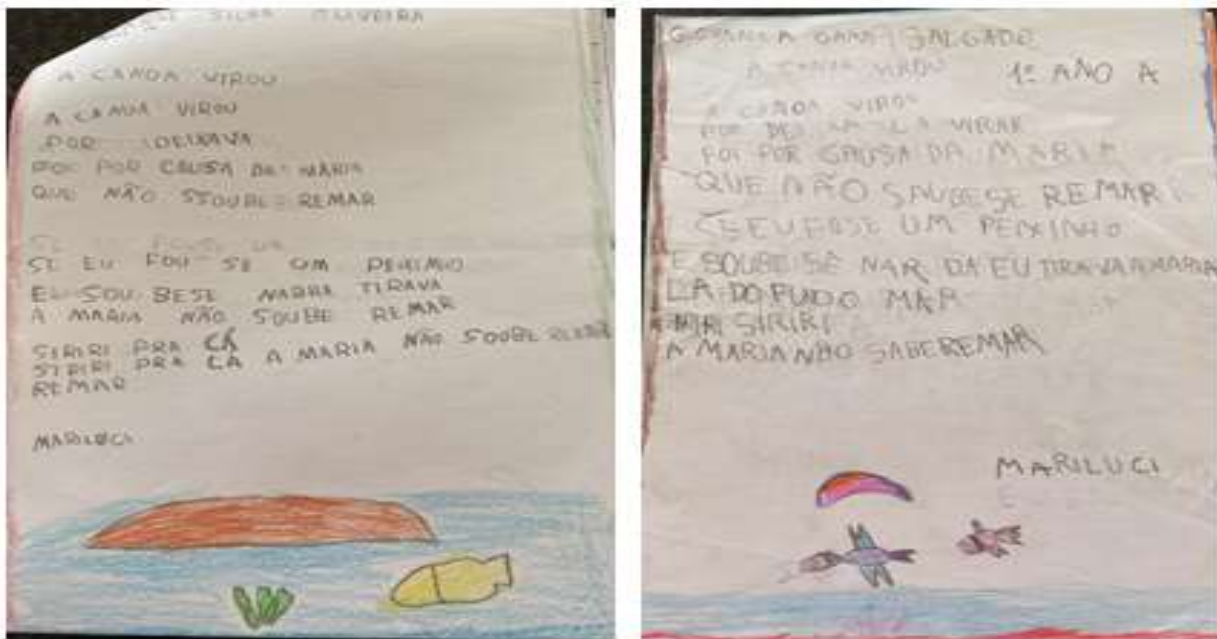 SILVA OLIVEIRA
A CANOA VIROU
A CANOA VIROU
POR DEIXAVA
FOI POR CAUSA DA MARIA
QUE NÃO SSOUBE REMAR
SE EU FOU SE UM PEXIMIO
EU SOU BESE NADRA TIRAVA
A MARIA NÃO SOUBE REMAR
SIRIRI PRA CÁ
SIRIRI PRA LÁ A MARIA NÃO SOUBE
REMAR
MARILUCI
SALGADO
A CANOA VIROU 1º ANO A
A CANOA VIROU
POR VIRAR
FOI POR CAUSA DA MARIA
QUE NÃO SAUBESE REMAR
SEEU FOSE UM PEIXINHO
E SOUBE SE NAR DA EU TIRAVA A MARIA
LA DO FUDO MAR
SIRIRI
A MARIA NÃO SABEREMAR
MARILUCI